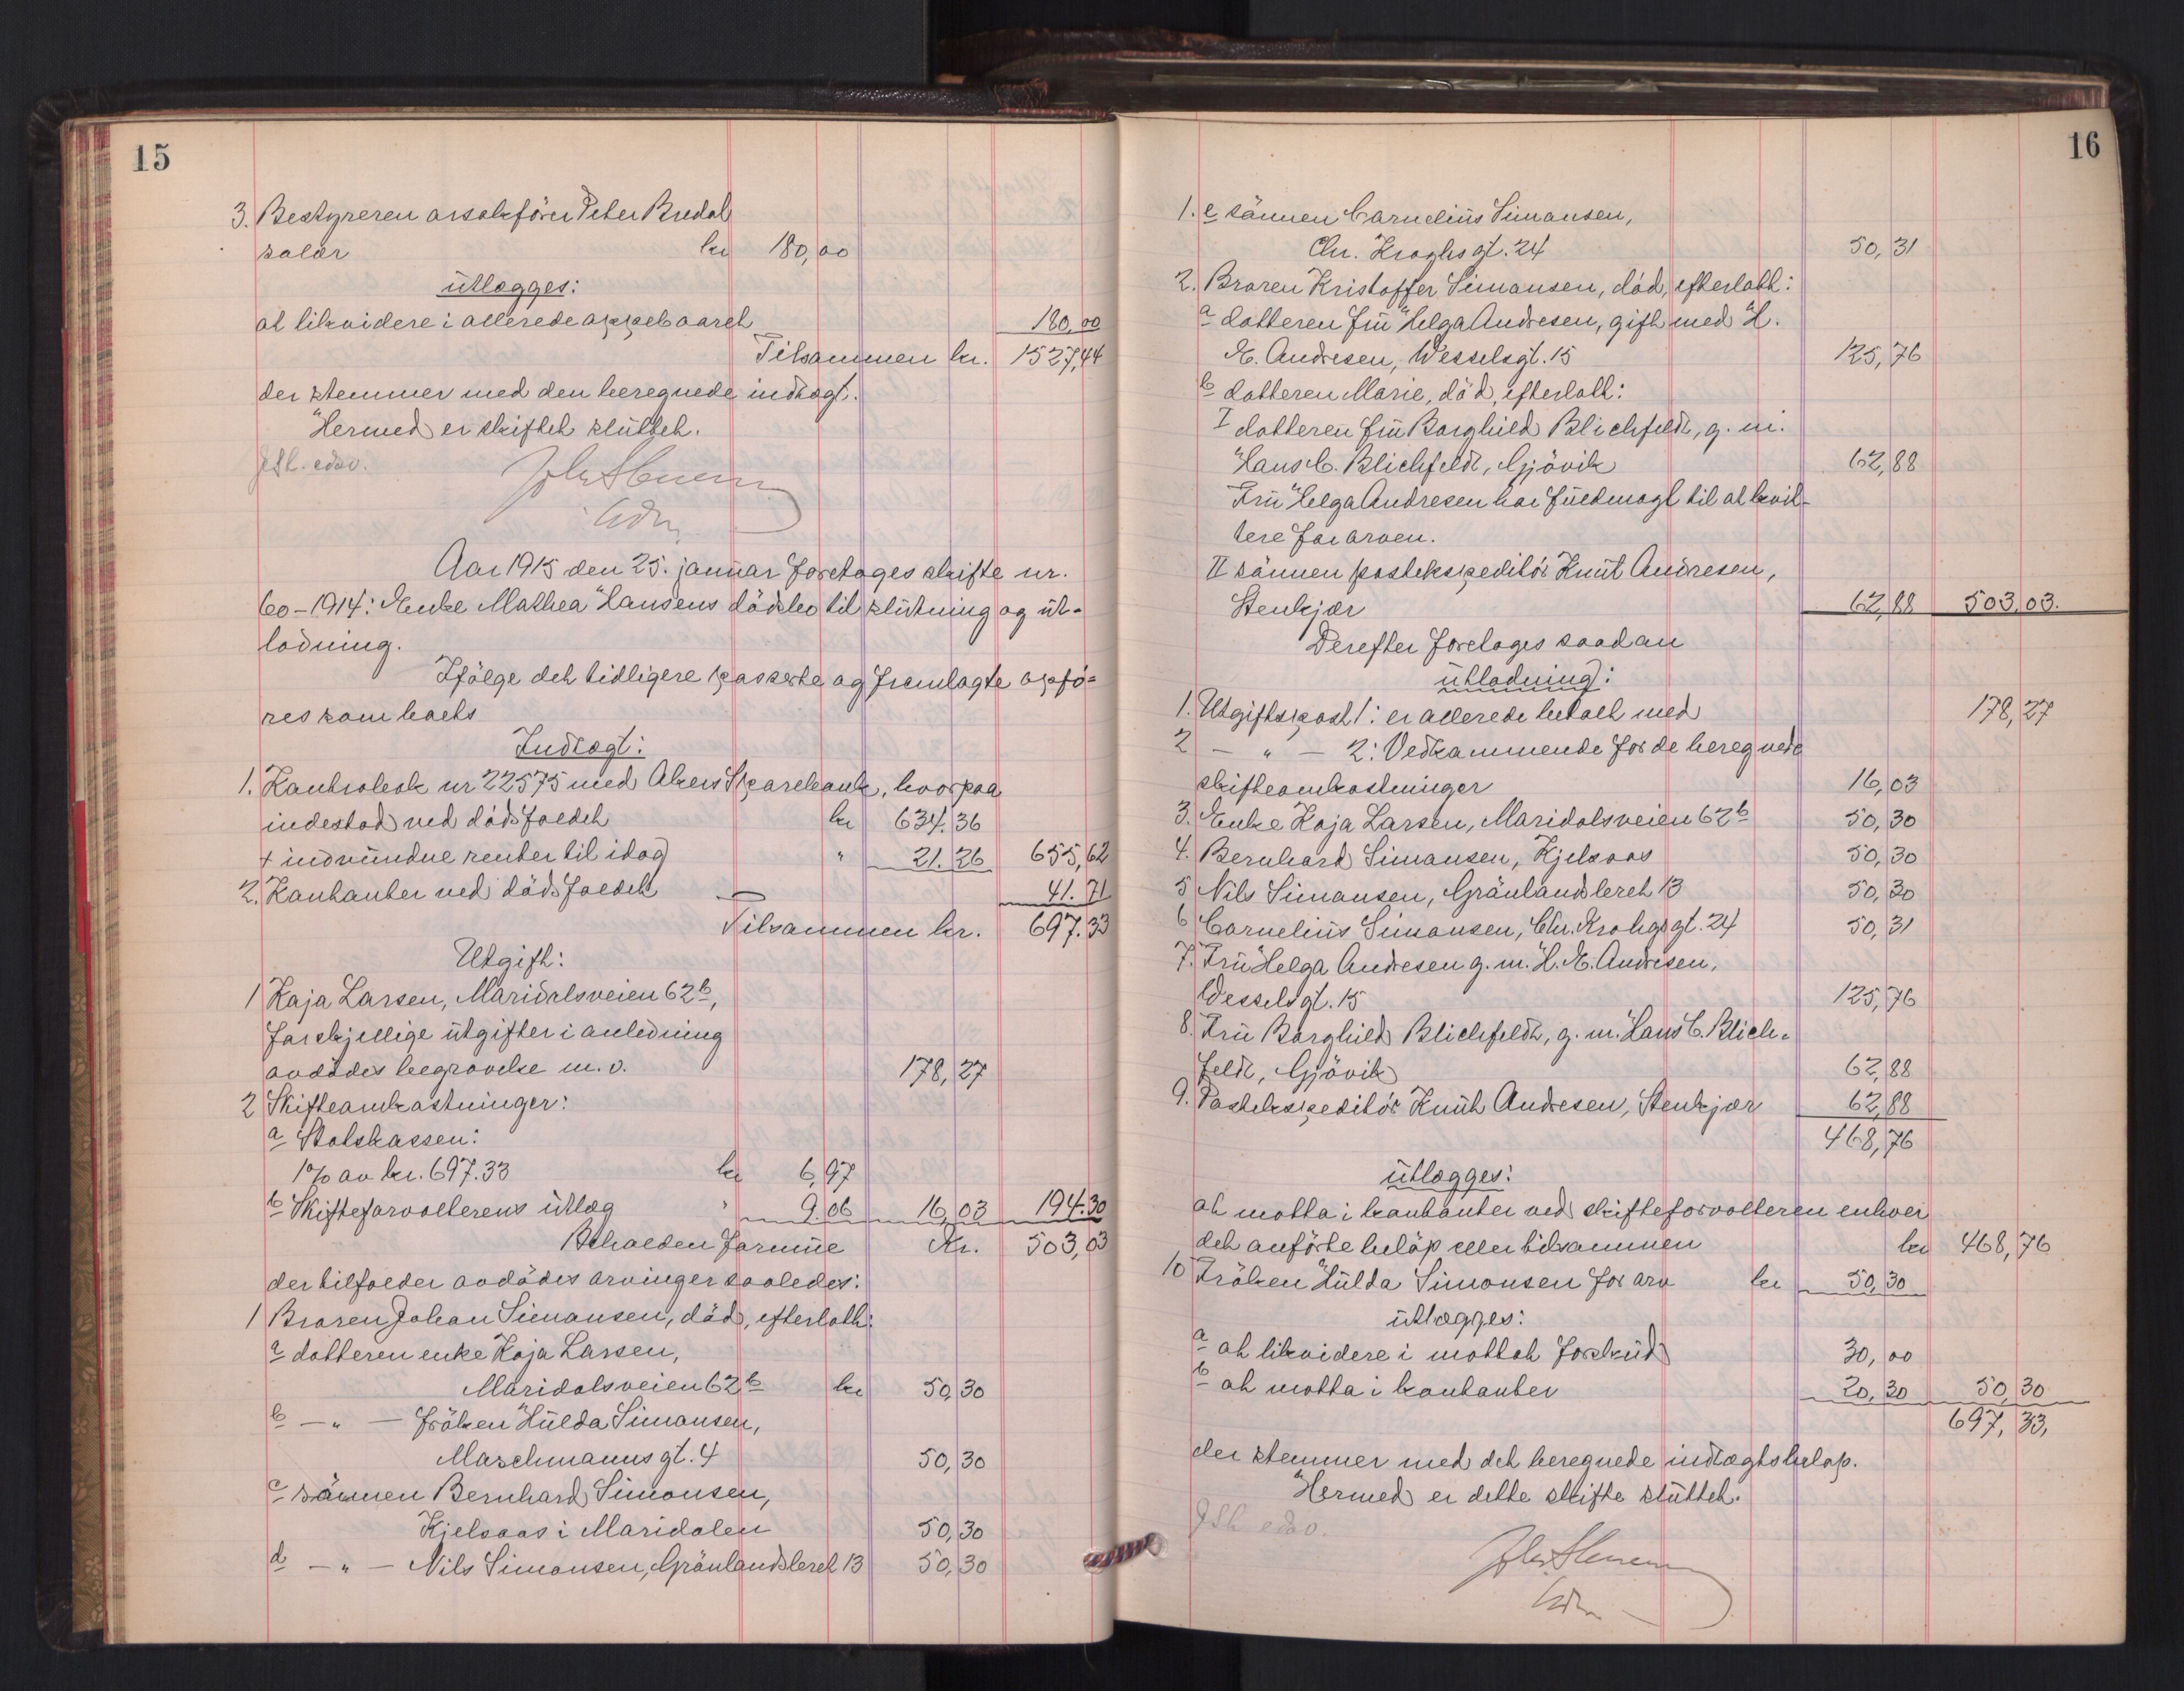 15
3. Bestyreren orsakfører Peter Bredal
salær kr 180,00
utlægges:
at likvidere i allerede oppebaaret 180,00
Tilsammen kr. 1527,44
der stemmer med den beregnede indtægt.
Hermed er skiftet sluttet.
Aar 1915 den 25. januar foretages skifte nr.
60-1914: Enke Mathea Hansens dødsbo til slutning og ut-
lodning.
Ifølge det tidligere passerte og fremlagte opfø-
res som boets
Indtægt:
1. Kontrabok nr 22575 med Akers Sparebank, hvorpaa
indestod ved dødsfaldet kr 634.36
+ indvundne renter til idag " 21.26 655,62
2. Kontanter ved dødsfaldet 41.71
Tilsammen kr. 697.33
Utgift:
1 Kaja Larsen, Maridalsveien 62b,
forskjellige utgifter i anledning
avdødes begravelse m.v. 178,27
2 Skifteomkostninger:
a Statskassen:
1% av kr. 697.33 kr 6,97
b Skifteforvalterens utlæg " 9.06 16,03 194.30
Beholden formue Kr. 503,03
der tilfalder avdødes arvinger saaledes:
1 Broren Johan Simonsen, død, efterlott:
a datteren enke Kaja Larsen,
Maridalsveien 62b kr 50,30
b — " — frøken Hulda Simonsen,
Marschmanns gt. 4 50,30
c sønnen Bernhard Simonsen,
Kjelsaas i Maridalen 50,30
d — " — Nils Simonsen, Grønlandsleret 13 50,30
16
1. e sønnen Cornelius Simonsen,
Chr. Kroghs gt. 24 50,31
2. Broren Kristoffer Simonsen, død, efterlott:
a datteren fru Helga Andresen, gift med H.
E. Andresen, Wesselsgt. 15 125,76
b datteren Marie, død, efterlott:
I datteren fru Borghild Blichfeldt, g. m.
Hans C. Blichfeldt, Gjøvik 62,88
Fru Helga Andresen har fuldmagt til at kvit-
tere for arven.
II sønnen postekspeditør Knut Andresen,
Stenkjær 62,88 503,03.
Derefter foretages saadan
utlodning:
1. Utgiftspost 1: er allerede betalt med 178,27
2 — " — 2: Vedkommende for de beregnede
skifteomkostninger 16,03
3. Enke Kaja Larsen, Maridalsveien 62b 50,30
4. Bernhard Simonsen, Kjelsaas 50,30
5 Nils Simonsen, Grønlandsleret 13 50,30
6 Cornelius Simonsen, Chr. Krohgs gt. 24 50,31
7. Fru Helga Andresen g. m. H. E. Andresen,
Wesselsgt. 15 125,76
8. Fru Borghild Blichfeldt, g. m. Hans C. Blich-
feldt, Gjøvik 62,88
9. Postekspeditør Knut Andresen, Stenkjær 62,88
468,76
utlægges:
at motta i kontanter ved skifteforvalteren enhver
det anførte beløp eller tilsammen kr 468,76
10 Frøken Hulda Simonsen for arv kr 50,30
utlægges:
a at likvidere i mottat forskud 30,00
b at motta i kontanter 20,30 50,30
697,33,
der stemmer med det beregnede indtægtsbeløp.
Hermed er dette skifte sluttet.